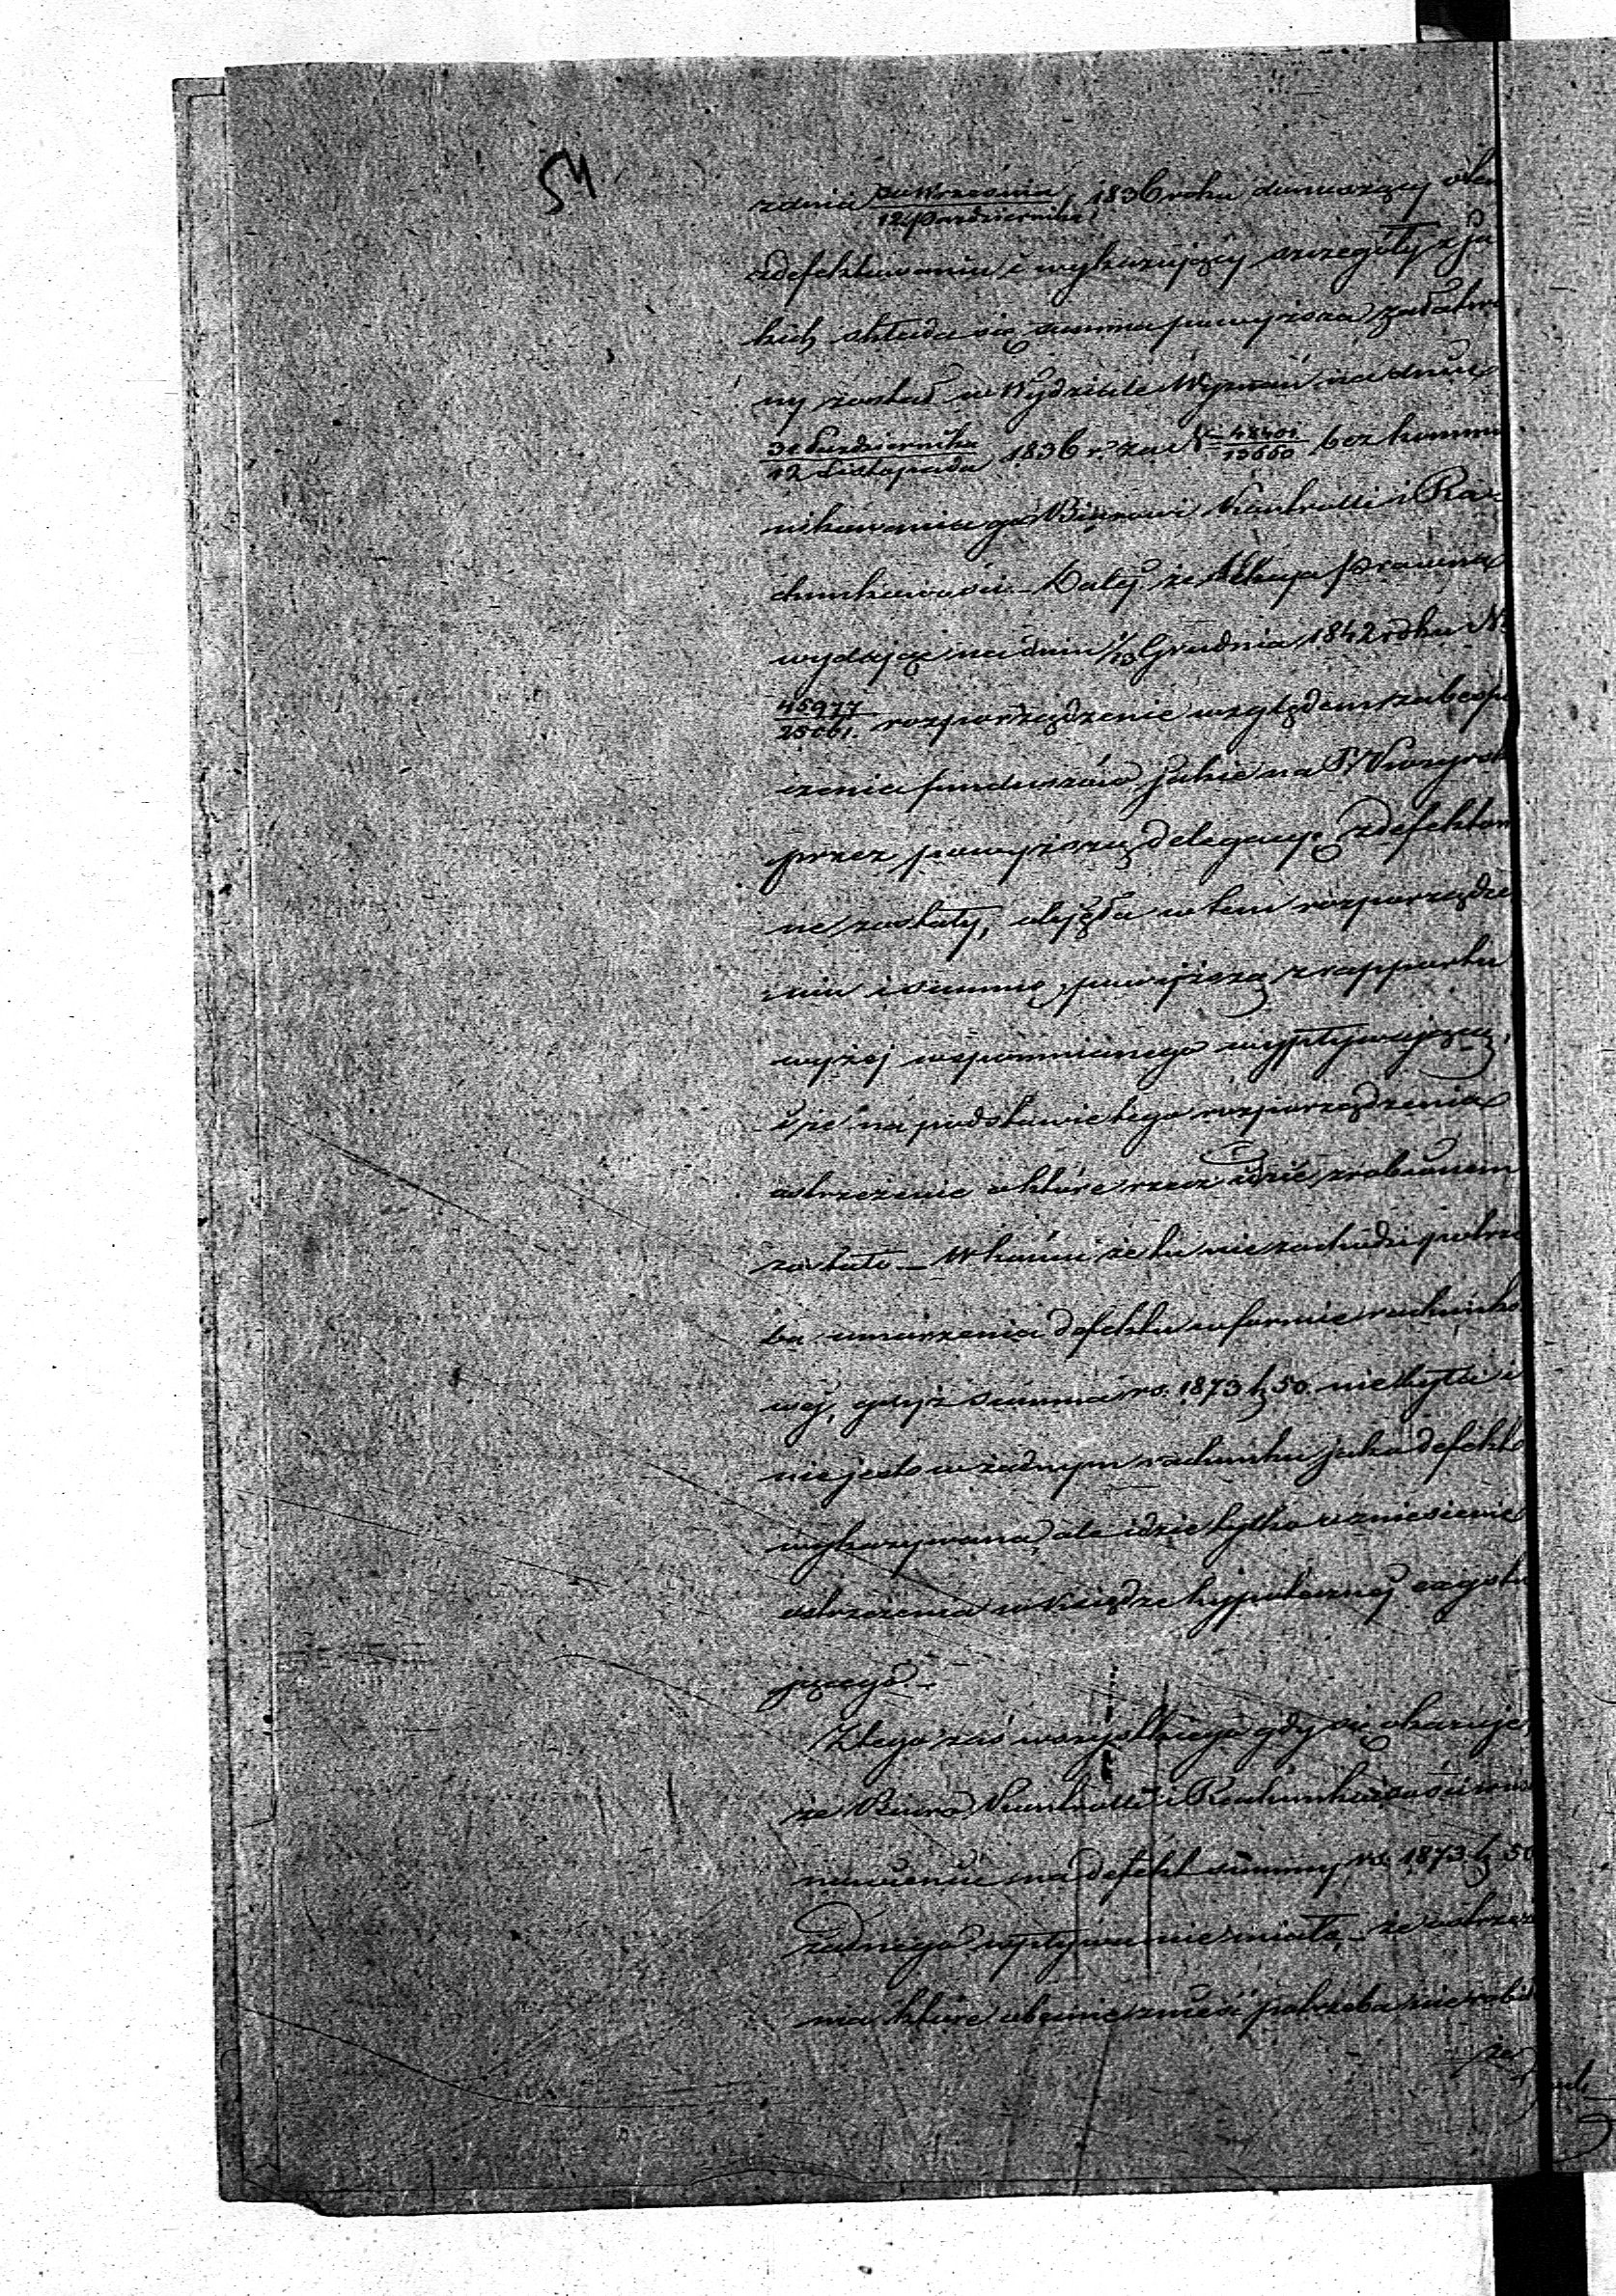 54
z dnia 30 Września/12 Października 1836 roku donoszący o tem
zdefektowaniu i wykazujący szczegóły z ja
kich składa się summa powyższa załatwio
ny został w Wydziale Wyznań na dniu
31 Października/12 Listopada 1836 r. za N 48401/13660 bez kommu
nikowania go Biurowi Kontrolli i Ra-
chunkowości. – Daléj że Sekcya Prawna
wydając na dniu 1/13 Grudnia 1842 roku N.
45977/25061. rozporządzenie względem zabezpie
czenia funduszów jakie na
przez powyższą delegacyę zdefektowa
ne zostały, objęła w tem rozporządze
niu i summę powyższą z rapportu
wyżej wspomnianego wypływającą,
i że na podstawie tego rozporządzenia
ostrzeżenie o które rzecz idzie zrobionem
zostało – W końcu że tu nie zachodzi potrze
ba umorzenia defektu w formie rachunko
wéj, gdyż summa rs. 1873 k 50. nie była i
nie jest w żadnym rachunku jako defekt
wykazywana, ale idzie tylko o zniesienie
ostrzeżenia w Księdze hypotecznej exystu
jącego –
Z tego zaś wszystkiego gdy się okazuje
że Biuro Kontrolli i Rachunkowości
na defekt summy rs 1873 k 50
żadnego wpływu nie miało, – że ostrzeże
nia które obecnie znieść potrzeba nie robiło
że